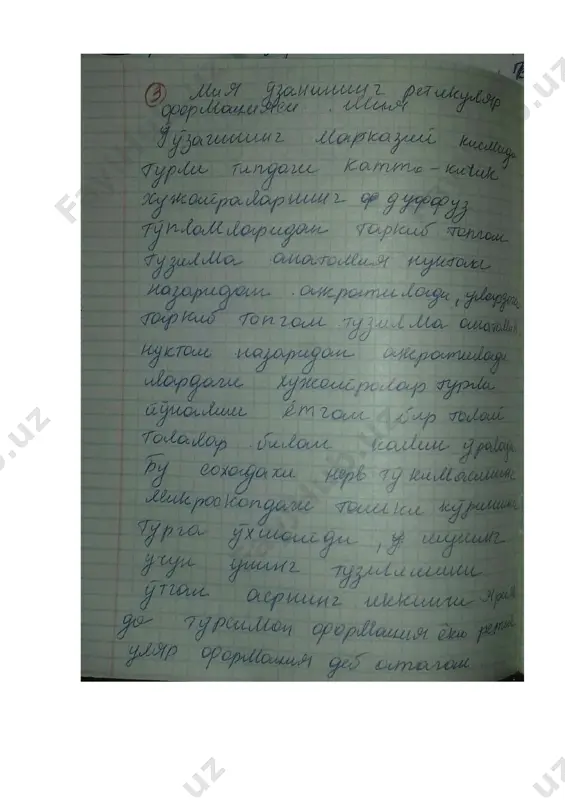 3 Мия ўзанининг ретикуляр
формацияси. Мия
ўзагининг марказий қисмида
турли типдаги катта-кичик
хужайраларнинг диффуз
тўпламларидан таркиб топган
тузилма анатомия нуқтаи
назаридан ажратилади,
таркиб топган тузилма
нуқтаи назаридан ажратилади
лардаги хужайралар турли
йўналиш ётган толай
толалар билан ўралади
Бу соҳадаги нерв тўқимасининг
микроскопдаги ташқи кўриниши
турга ўхшайди, у шунинг
учун унинг тузилишини
ўтган асрнинг иккинчи ярми
да турсимон формация ёки рети
уляр формация деб атаган